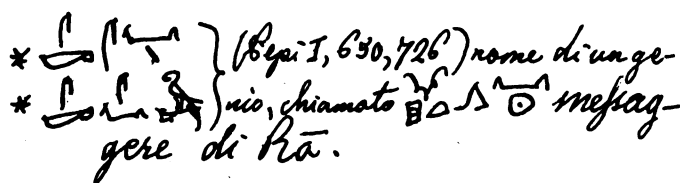 * (Pepi I, 650, 726) nome di un ge-
* nio, chiamato messag-
gere di Rā.